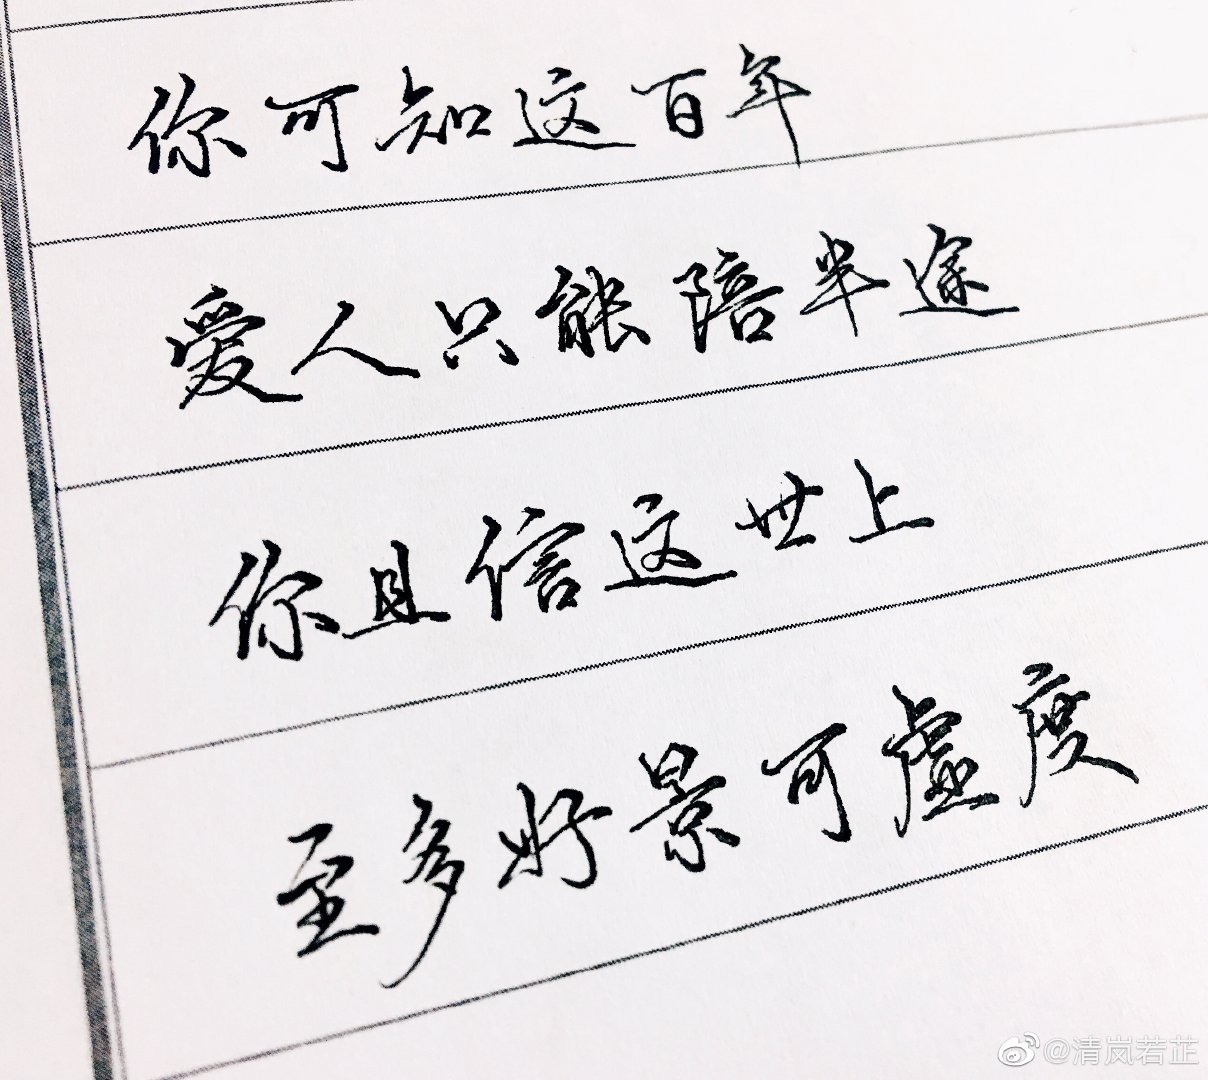 你可知这百年
爱人只能陪半途
你且信这世上
至多好景可虚度
@清岚若芷